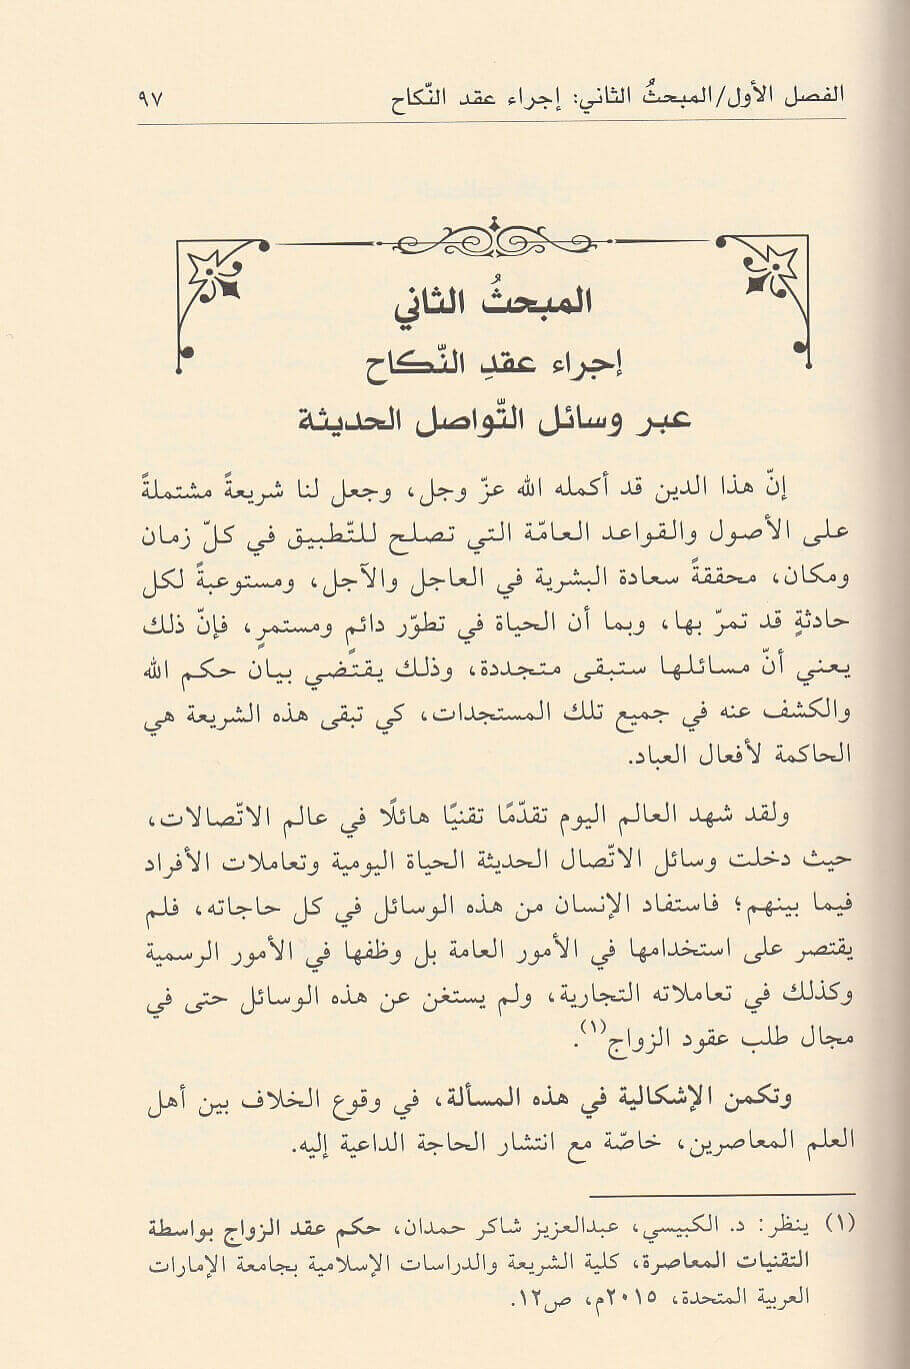 الفصل الأول/المبحثُ الثاني: إجراء عقد النّكاح
٩٧
المبحثُ الثاني
إجراء عقدِ النّكاح
عبر وسائل التّواصل الحديثة
إنّ هذا الدين قد أكمله الله عزّ وجل، وجعل لنا شريعةً مشتملةً
على الأصول والقواعد العامّة التي تصلح للتّطبيق في كلّ زمان
ومكان، محققةً سعادة البشرية في العاجل والآجل، ومستوعبةً لكل
حادثةٍ قد تمرّ بها، وبما أن الحياة في تطوّر دائمٍ ومستمرٍ، فإنّ ذلك
يعني أنّ مسائلها ستبقى متجددة، وذلك يقتضي بيان حكم الله
والكشف عنه في جميع تلك المستجدات، كي تبقى هذه الشريعة هي
الحاكمة لأفعال العباد.
ولقد شهد العالم اليوم تقدّمًا تقنيًا هائلًا في عالم الاتّصالات،
حيث دخلت وسائل الاتّصال الحديثة الحياة اليومية وتعاملات الأفراد
فيما بينهم؛ فاستفاد الإنسان من هذه الوسائل في كل حاجاته، فلم
يقتصر على استخدامها في الأمور العامة بل وظفها في الأمور الرسمية
وكذلك في تعاملاته التجارية، ولم يستغن عن هذه الوسائل حتى في
مجال طلب عقود الزواج(١).
وتكمن الإشكالية في هذه المسألة، في وقوع الخلاف بين أهل
العلم المعاصرين، خاصّة مع انتشار الحاجة الداعية إليه.
(١) ينظر: د. الكبيسي، عبدالعزيز شاكر حمدان، حكم عقد الزواج بواسطة
التقنيات المعاصرة، كلية الشريعة والدراسات الإسلامية بجامعة الإمارات
العربية المتحدة، ٢٠١٥م، ص١٢.